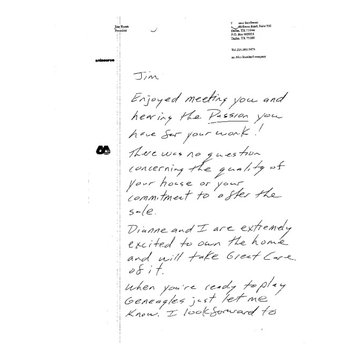 President
Dallas, TX
P.O. Box
Dallas, TX
Jim
Enjoyed meeting you and
hearing the Passion you
have for your work!
There was no question
concerning the quality of
your house or your
commitment to after the
sale.
Dianne and I are extremely
excited to own the home
and will take Great Care
of it.
When you're ready to play
Geneagles just let me
Know. I look forward to